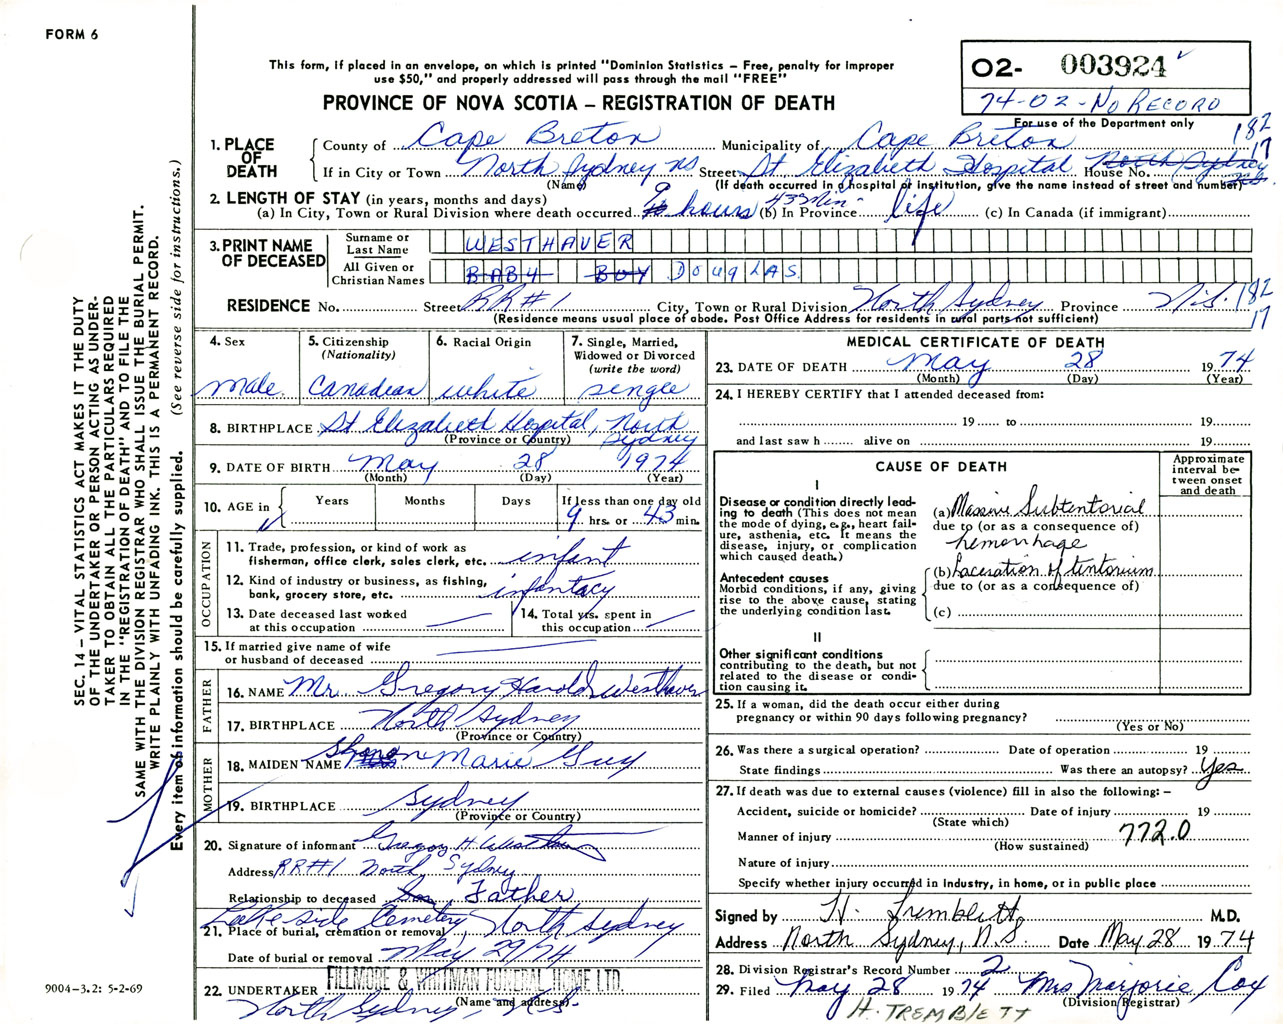 FORM 6
This form, if placed in an envelope, on which is printed "Dominion Statistics – Free, penalty for improper
use $50," and properly addressed will pass through the mail "FREE"
PROVINCE OF NOVA SCOTIA – REGISTRATION OF DEATH
O2- 003924
74-02-NO RECORD
For use of the Department only
182
17
1. PLACE OF DEATH
County of Cape Breton Municipality of Cape Breton
If in City or Town North Sydney NS Street St Elizabeth Hospital House No. North Sydney N.S.
(Name) (If death occurred in a hospital or institution, give the name instead of street and number)
2. LENGTH OF STAY (in years, months and days)
(a) In City, Town or Rural Division where death occurred 9 hours 43 Min- (b) In Province life (c) In Canada (if immigrant)
3. PRINT NAME OF DECEASED
Surname or Last Name WESTHAVER
All Given or Christian Names BABY BOY DOUGLAS
RESIDENCE No. Street RR#1 City, Town or Rural Division North Sydney Province N.S. 182
17
(Residence means usual place of abode. Post Office Address for residents in rural parts not sufficient)
4. Sex
male
5. Citizenship
(Nationality)
Canadian
6. Racial Origin
white
7. Single, Married,
Widowed or Divorced
(write the word)
single
8. BIRTHPLACE St Elizabeth Hospital, North Sydney
(Province or Country)
9. DATE OF BIRTH May 28 1974
(Month) (Day) (Year)
10. AGE in
Years Months Days If less than one day old
9 hrs. or 43 min.
OCCUPATION
11. Trade, profession, or kind of work as
fisherman, office clerk, sales clerk, etc. infant
12. Kind of industry or business, as fishing,
bank, grocery store, etc. infantacy
13. Date deceased last worked
at this occupation
14. Total yrs. spent in
this occupation
15. If married give name of wife
or husband of deceased
FATHER
16. NAME Mr. Gregory Harold Westhaver
17. BIRTHPLACE North Sydney
(Province or Country)
MOTHER
18. MAIDEN NAME Sharon Marie Guy
19. BIRTHPLACE Sydney
(Province or Country)
20. Signature of informant Gregory H. Westhaver
Address RR#1 North Sydney
Relationship to deceased Son, Father
Lakeside Cemetery, North Sydney
21. Place of burial, cremation or removal
Date of burial or removal May 29/74
22. UNDERTAKER FILLMORE & WHITMAN FUNERAL HOME LTD.
(Name and address)
North Sydney, N.S.
MEDICAL CERTIFICATE OF DEATH
23. DATE OF DEATH May 28 1974
(Month) (Day) (Year)
24. I HEREBY CERTIFY that I attended deceased from:
19 to 19
and last saw h alive on 19
CAUSE OF DEATH
Approximate
interval be-
tween onset
and death
I
Disease or condition directly lead-
ing to death (This does not mean
the mode of dying, e.g., heart fail-
ure, asthenia, etc. It means the
disease, injury, or complication
which caused death.)
(a) Massive Subtentorial
due to (or as a consequence of)
hemorrhage
Antecedent causes
Morbid conditions, if any, giving
rise to the above cause, stating
the underlying condition last.
(b) Laceration of tentorium
due to (or as a consequence of)
(c)
II
Other significant conditions
contributing to the death, but not
related to the disease or condi-
tion causing it.
25. If a woman, did the death occur either during
pregnancy or within 90 days following pregnancy?
(Yes or No)
26. Was there a surgical operation? Date of operation 19
State findings Was there an autopsy? Yes
27. If death was due to external causes (violence) fill in also the following: –
Accident, suicide or homicide? Date of injury 19
(State which)
Manner of injury 772.0
(How sustained)
Nature of injury
Specify whether injury occurred in Industry, in home, or in public place
Signed by H. Tremblett M.D.
Address North Sydney, N.S. Date May 28 1974
28. Division Registrar's Record Number 2
29. Filed May 28 1974 Mrs Marjorie Cox
(Division Registrar)
H. TREMBLETT
SEC. 14 – VITAL STATISTICS ACT MAKES IT THE DUTY
OF THE UNDERTAKER OR PERSON ACTING AS UNDER-
TAKER TO OBTAIN ALL THE PARTICULARS REQUIRED
IN THE "REGISTRATION OF DEATH" AND TO FILE THE
SAME WITH THE DIVISION REGISTRAR WHO SHALL ISSUE THE BURIAL PERMIT.
WRITE PLAINLY WITH UNFADING INK. THIS IS A PERMANENT RECORD.
Every item of information should be carefully supplied. (See reverse side for instructions.)
9004-3.2: 5-2-69